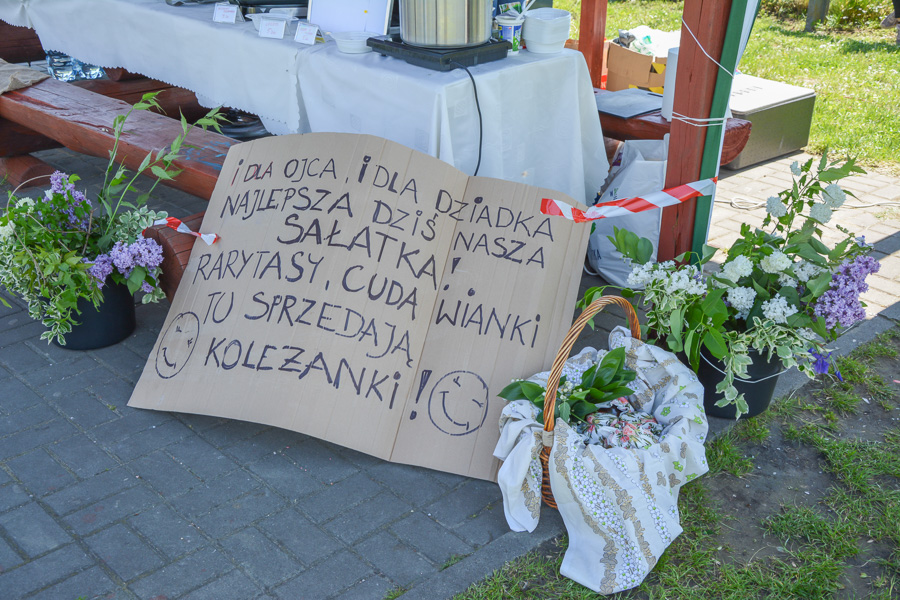 i DLA OJCA, i DLA DZIADKA
NAJLEPSZA DZIŚ NASZA
SAŁATKA!
RARYTASY, CUDA WIANKI
TU SPRZEDAJĄ
KOLEŻANKI!